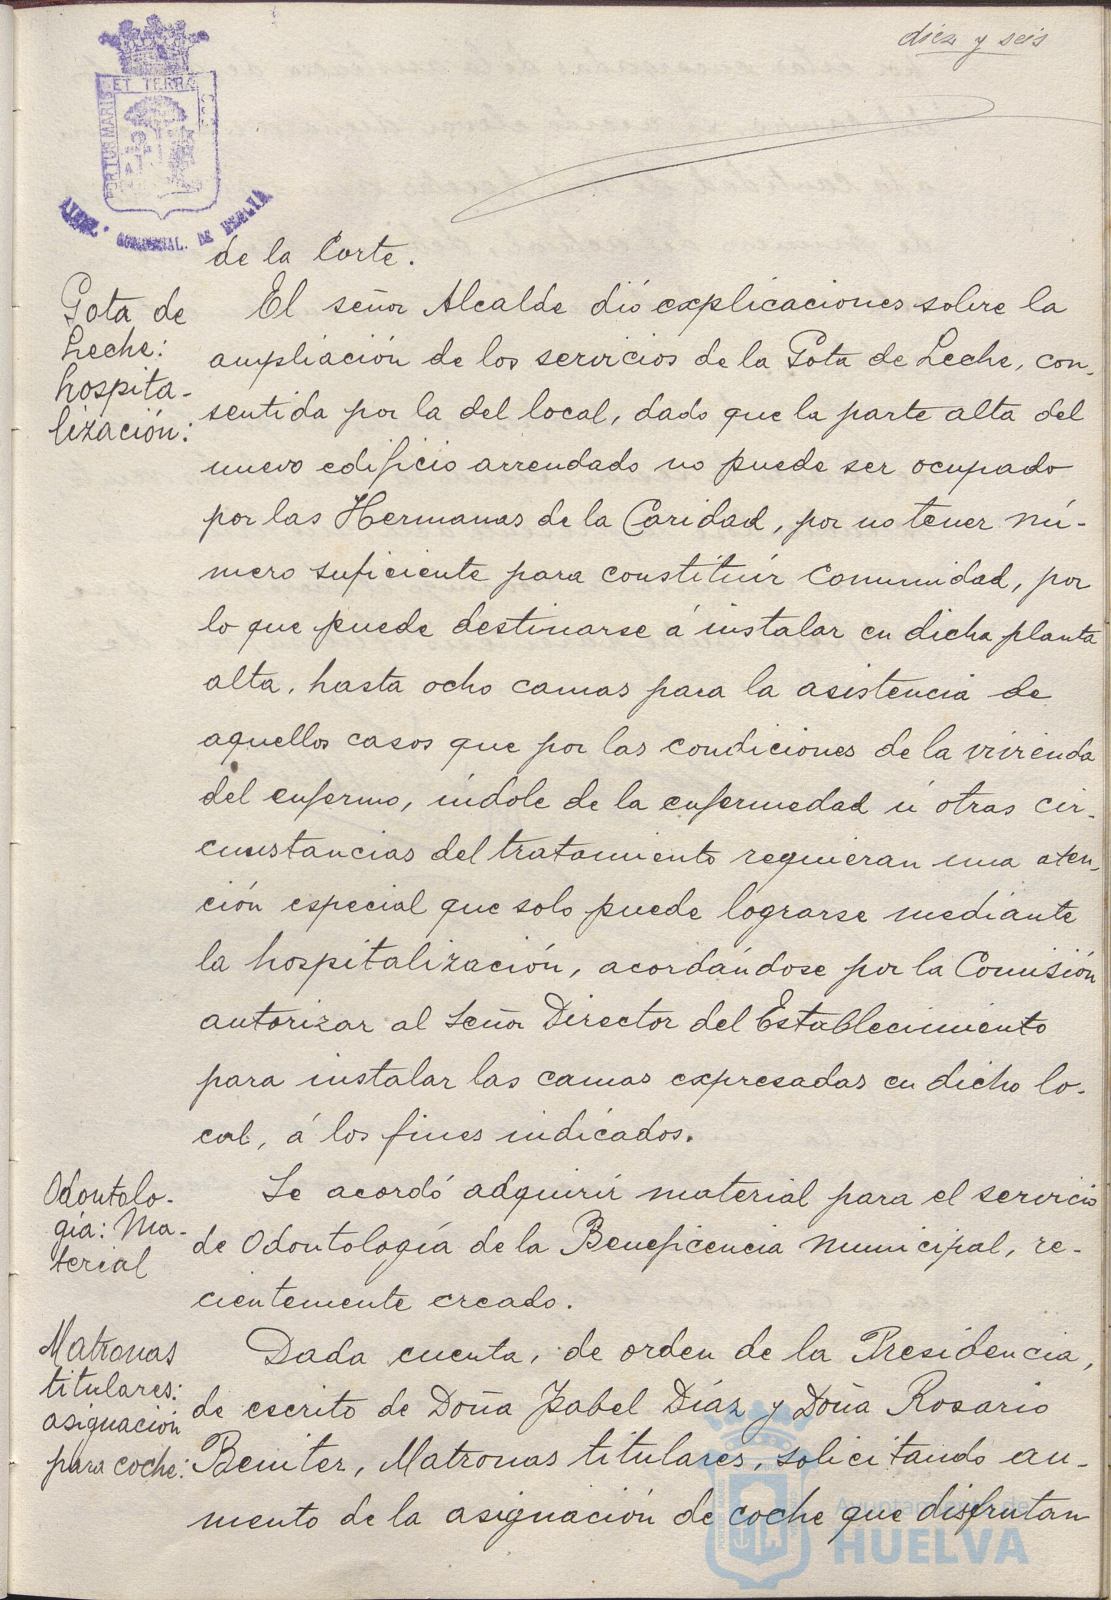 diez y seis
PORTUS MARIS ET TERRAE CUS
AYUNT. CONSTITUCIONAL. DE HUELVA
de la Corte.
Gota de
Leche:
hospita-
lización:
El señor Alcalde dió explicaciones sobre la
ampliación de los servicios de la Gota de Leche, con-
sentida por la del local, dado que la parte alta del
nuevo edificio arrendado no puede ser ocupado
por las Hermanas de la Caridad, por no tener nú-
mero suficiente para constituir Comunidad, por
lo que puede destinarse á instalar en dicha planta
alta, hasta ocho camas para la asistencia de
aquellos casos que por las condiciones de la vivienda
del enfermo, indole de la enfermedad ú otras cir-
cunstancias del tratamiento requieran una aten-
ción especial que solo puede lograrse mediante
la hospitalización, acordándose por la Comisión
autorizar al Señor Director del Establecimiento
para instalar las camas expresadas en dicho lo-
cal, á los fines indicados.
Odontolo-
gía: Ma-
terial
Se acordó adquirir material para el servicio
de Odontología de la Beneficencia municipal, re-
cientemente creado.
Matronas
titulares:
asignación
para coche:
Dada cuenta, de orden de la Presidencia,
de escrito de Doña Isabel Díaz y Doña Rosario
Benitez, Matronas titulares, solicitando au-
mento de la asignación de coche que disfrutan
Ayuntamiento de
HUELVA